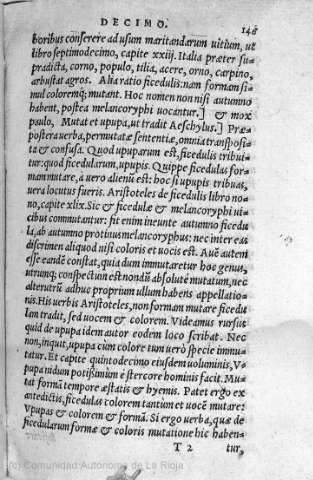 DECIMO. 148
boribus conserere ad usum maritandarum uitium, ut
libro septimodecimo, capite xxiij. Italia præter su-
prădicta, corno, populo, tilia, acere, orno, carpino,
arbustat agros. Alia ratio ficedulis. nam formam si-
mul coloremq; mutant. Hoc nomen non nisi autumno
habent, postea melancoryphi uocantur.] & mox
paulo, Mutat et upupa, ut tradit Aeschylus.] Præ-
postera uerba, permutatæ sententiæ, omnia transposi-
ta & confusa. Quod upuparum est, ficedulis tribui-
tur: quod ficedularum, upupis. Quippe ficedulas for-
man mutare, à uero alienũ est: hoc si upupis tribuas,
uera locutus fueris. Aristoteles de ficedulis libro no-
no, capite xlix. Sic & ficedulæ & melancoryphi ui-
cibus commutantur: fit enim ineunte autumno ficedu
la, ab autumno protinus melancoryphus: nec inter eas
discrimen aliquod nisi coloris et uocis est. Auẽ autem
esse eandẽ constat, quia dum immutaretur hoc genus,
utrumq; conspectum est nondũ absolutè mutatum, nec
alterutrũ adhuc proprium ullum habens appellatio-
nis. His uerbis Aristoteles, non formam mutare ficedu
lam tradit, sed uocem & colorem. Videamus rursus
quid de upupa idem autor eodem loco scribat. Nec
non, inquit, upupa cùm colore tum uerò specie immu-
tatur. Et capite quintodecimo eiusdem uoluminis, V-
pupa nidum potissimùm è stercore hominis facit. Mu-
tat formã tempore æstatis & hyemis. Patet ergo ex
antedictis, ficedulas colorem tantum et uocẽ mutare:
Vpupas & colorem & formã. Si ergo uerba, quæ de
ficedularum formæ & coloris mutatione hic haben-
T 2 tur,
(c) Comunidad Autónoma de La Rioja